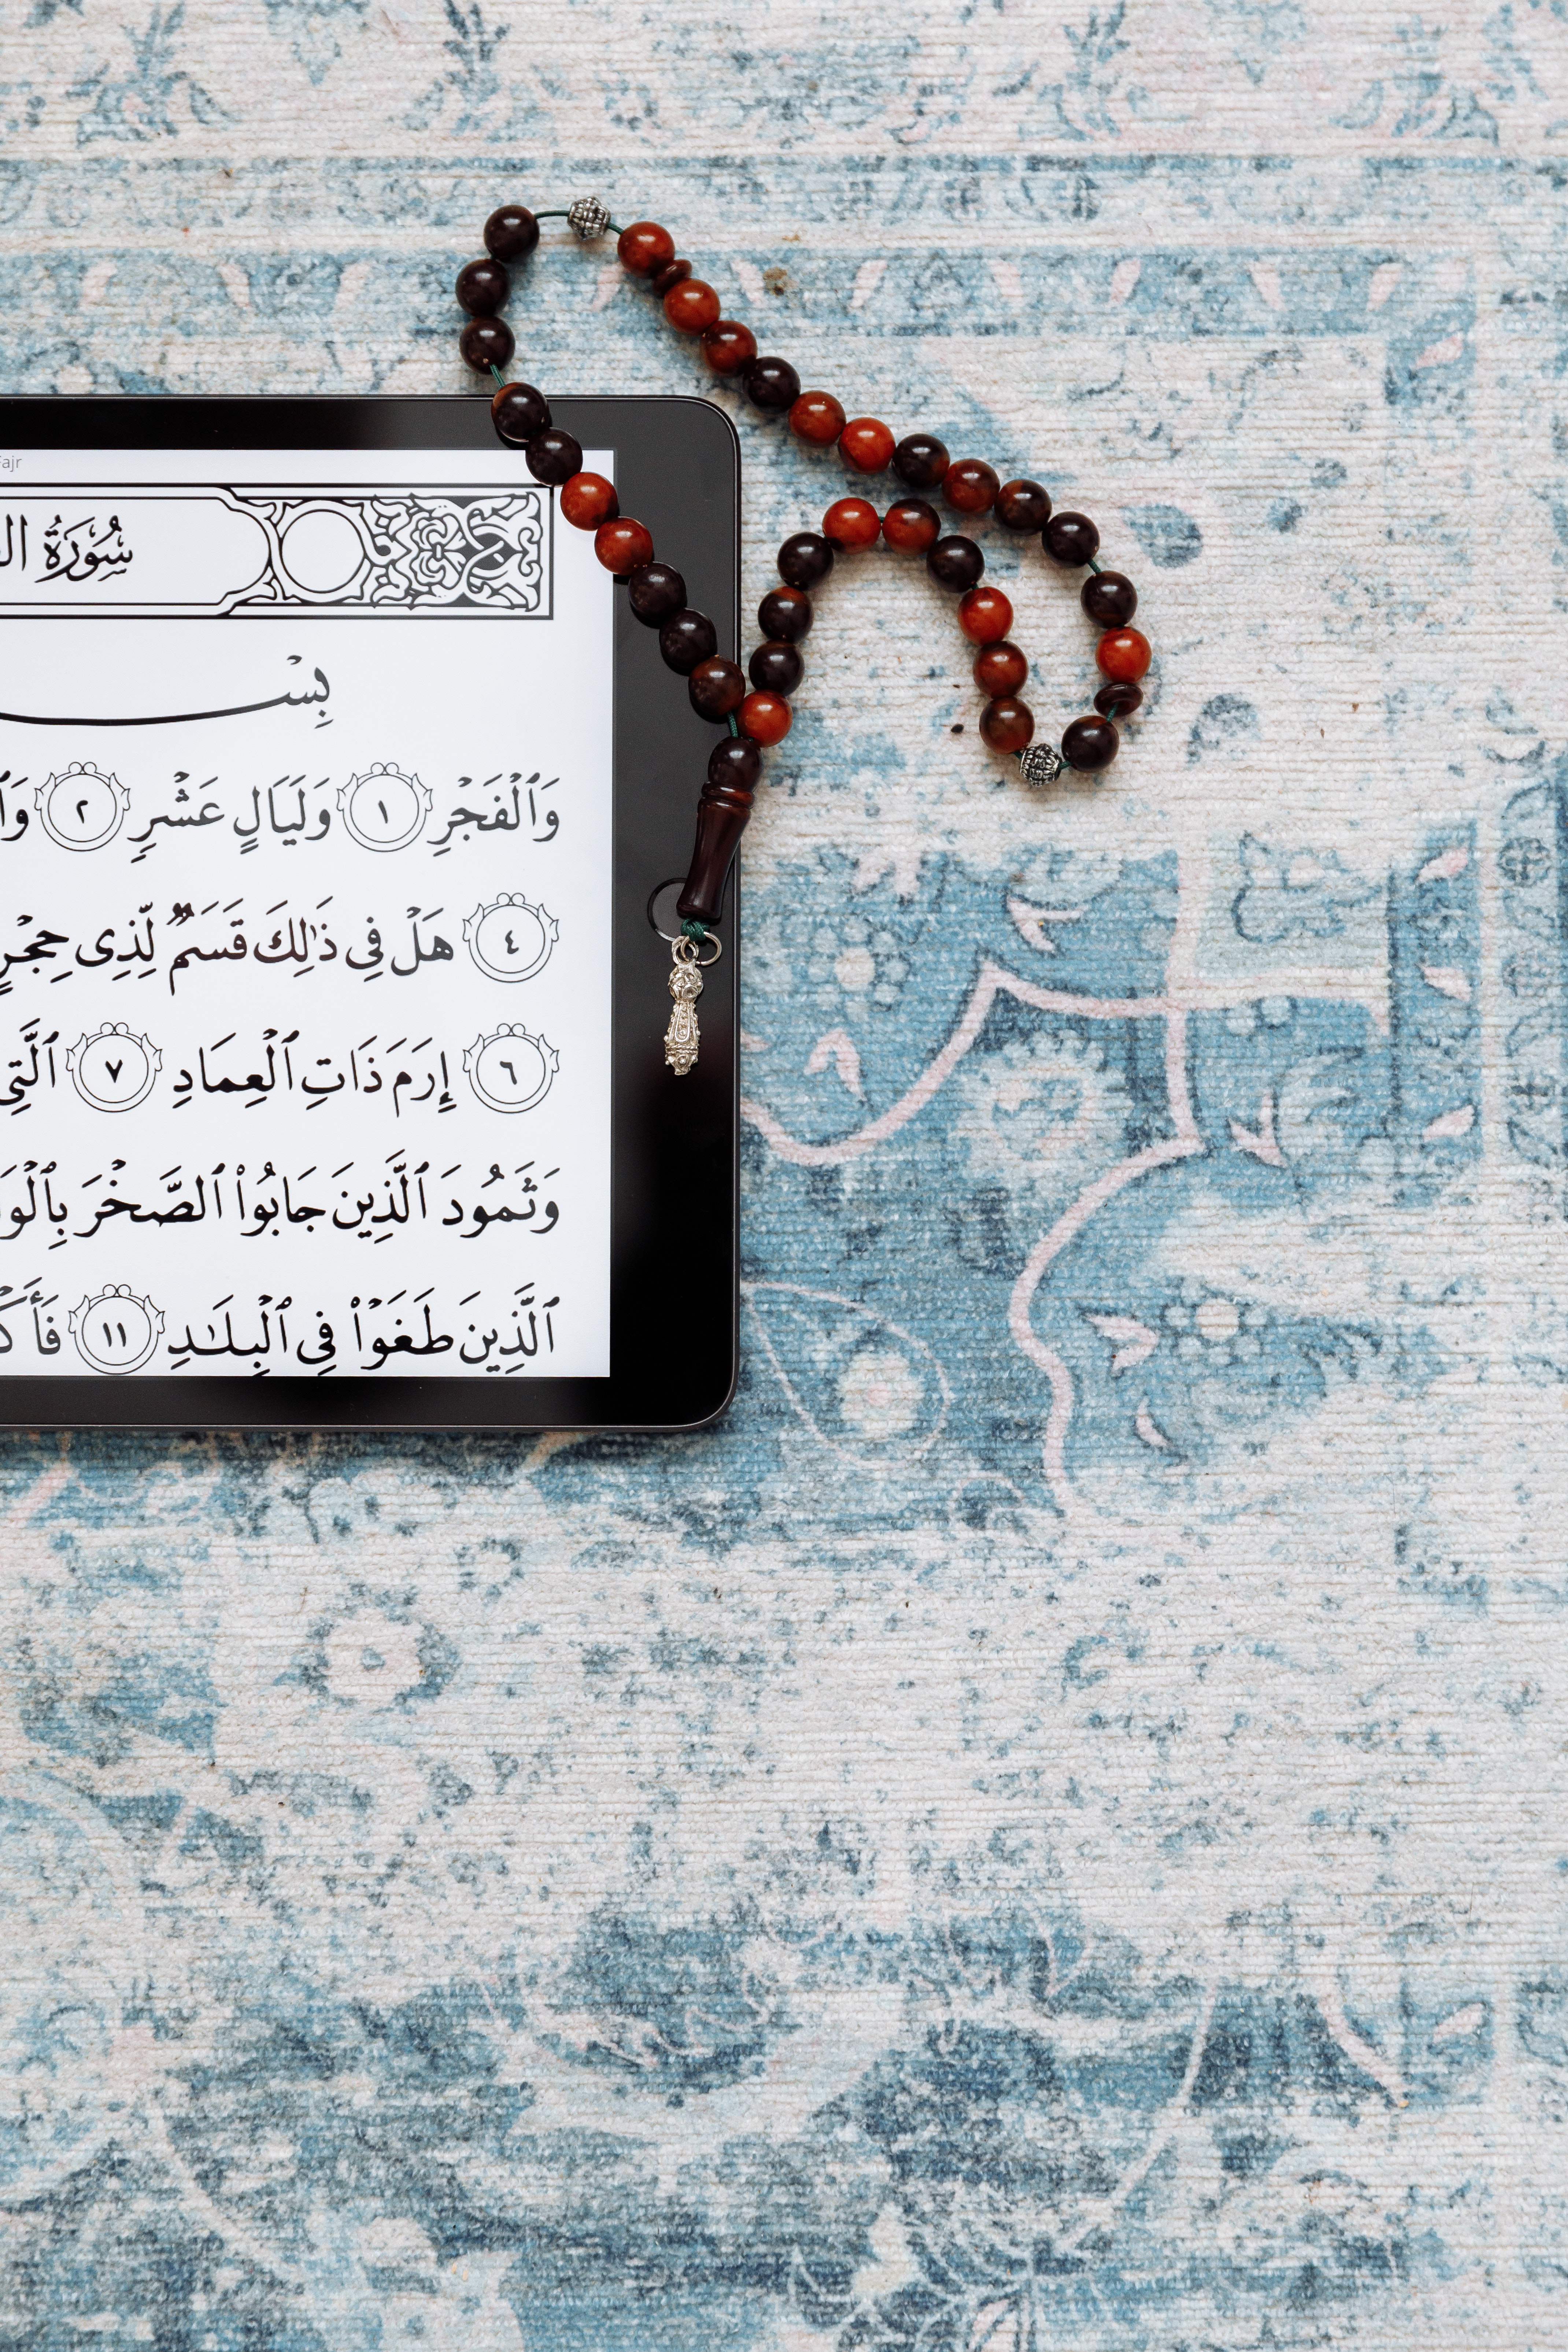 Fajr
سُورَةُ
بِسْ
وَٱلْفَجْرِ ١ وَلَيَالٍ عَشْرٍ ٢
٤ هَلْ فِى ذَٰلِكَ قَسَمٌ لِّذِى حِجْرٍ
٦ إِرَمَ ذَاتِ ٱلْعِمَادِ ٧ ٱلَّتِى
وَثَمُودَ ٱلَّذِينَ جَابُوا۟ ٱلصَّخْرَ
ٱلَّذِينَ طَغَوْا۟ فِى ٱلْبِلَـٰدِ ١١